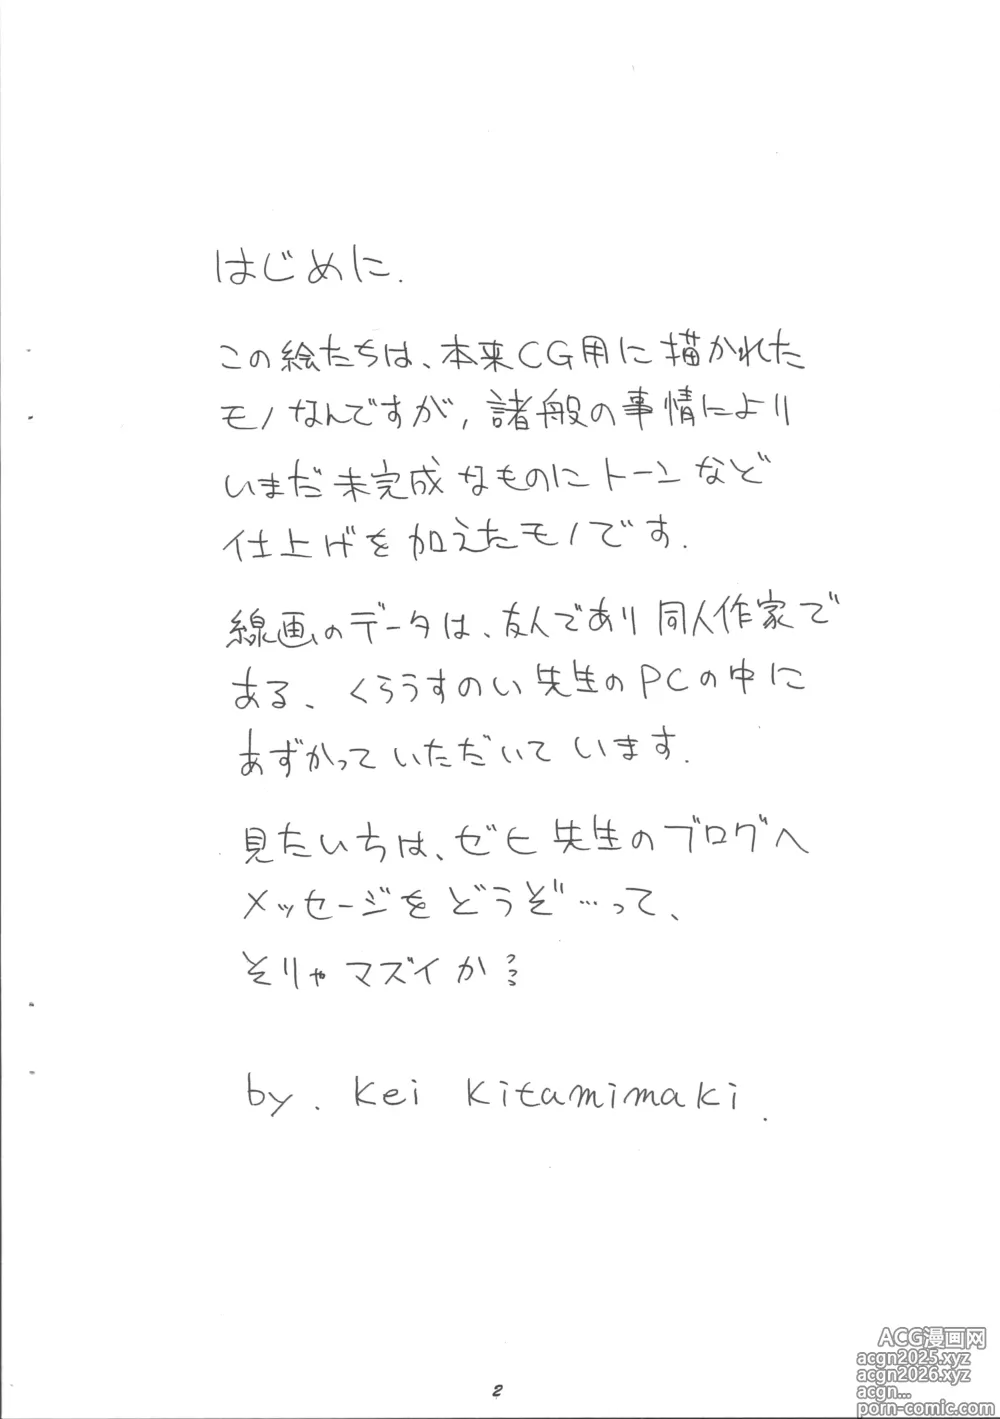 はじめに.
この絵たちは、本来CG用に描かれた
モノなんですが, 諸般の事情により
いまだ未完成なものにトーンなど
仕上げを加えたモノです.
線画のデータは、友人であり同人作家で
ある、くろうすのい先生のPCの中に
あずかっていただいています.
見たいちは、ゼヒ先生のブログへ
メッセージをどうぞ…って、
そりゃマズイか
by. Kei Kitamimaki.
2
ACG漫画网
acgn2025.xyz
acgn2026.xyz
acgn...
porn-comic.com